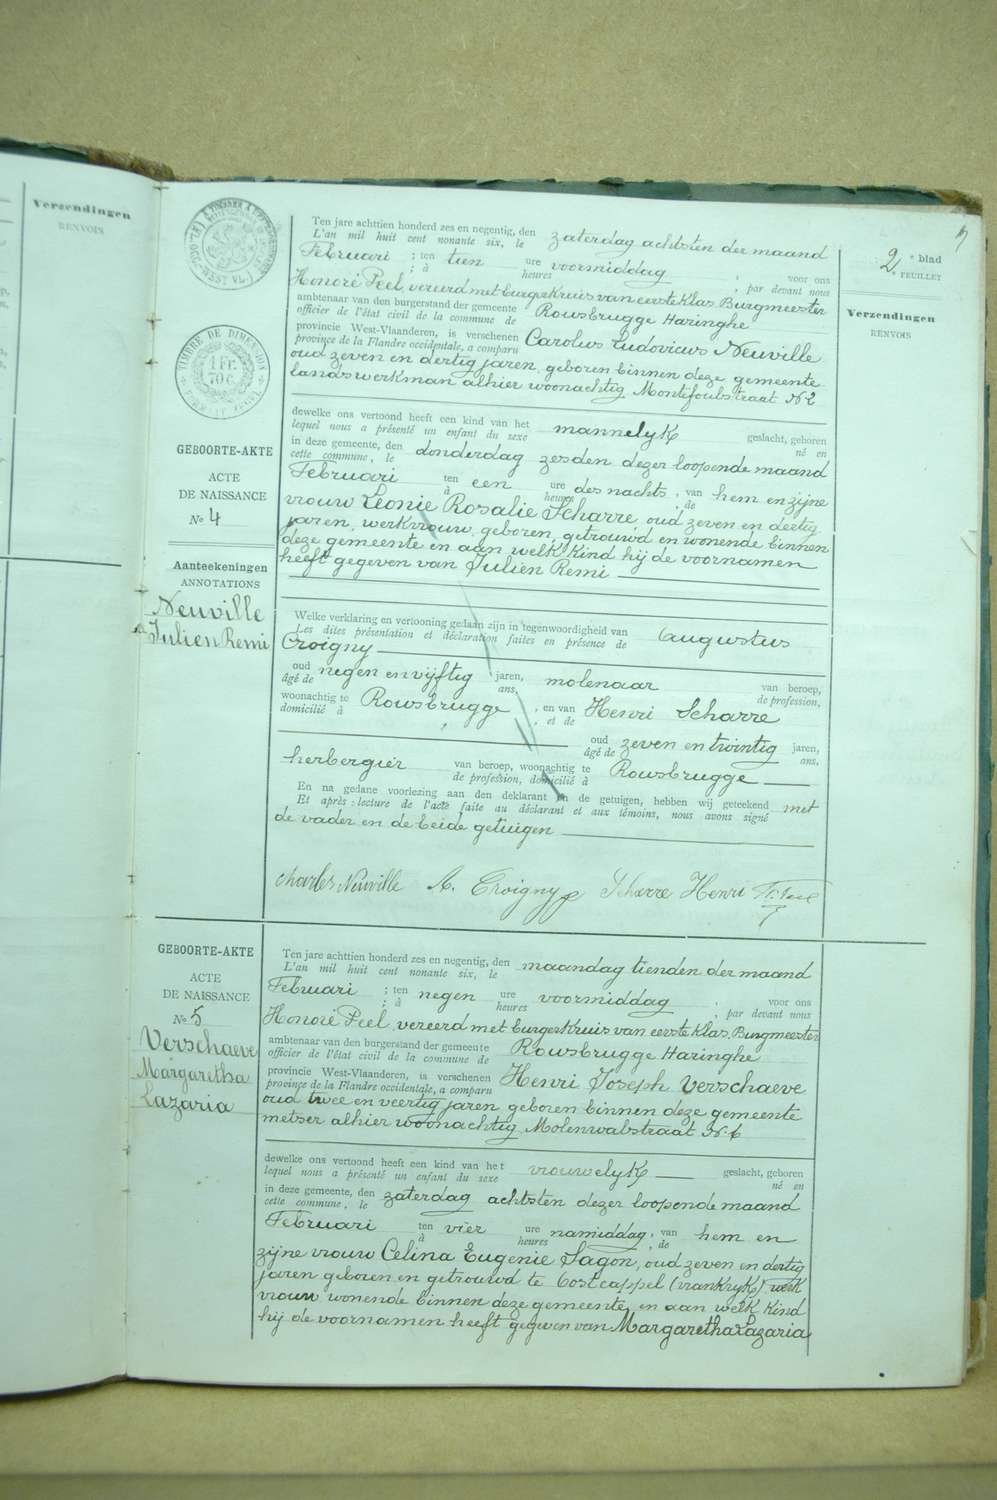 Verzendingen
RENVOIS
TIMBRE DE DIMENSION
1 FR.
70 C.
GEBOORTE-AKTE
ACTE
DE NAISSANCE
No 4
Aanteekeningen
ANNOTATIONS
Neuville
Julien Remi
2e blad
e FEUILLET
Verzendingen
RENVOIS
Ten jare achttien honderd zes en negentig, den zaterdag achtsten der maand
L'an mil huit cent nonante six, le
Februari ; ten tien ure voormiddag , voor ons
; à heures , par devant nous
Honoré Peel, vereerd met burgerkruis van eerste klas, Burgmeester
ambtenaar van den burgerstand der gemeente Rousbrugge Haringhe
officier de l'état civil de la commune de
provincie West-Vlaanderen, is verschenen Carolus Ludovicus Neuville
province de la Flandre occidentale, a comparu
oud zeven en dertig jaren, geboren binnen deze gemeente
landswerkman alhier woonachtig Montifoubstraat No 2
dewelke ons vertoond heeft een kind van het mannelyk geslacht, geboren
lequel nous a présenté un enfant du sexe né en
in deze gemeente, den donderdag zesden dezer loopende maand
cette commune, le
Februari ten een ure des nachts , van hem en zijne
à heures , de
vrouw Leonie Rosalie Scharre, oud zeven en dertig
jaren, werkvrouw, geboren, getrouwd en wonende binnen
deze gemeente en aan welk kind hij de voornamen
heeft gegeven van Julien Remi
Welke verklaring en vertooning gedaan zijn in tegenwoordigheid van Augustus
Les dites présentation et déclaration faites en présence de
Croigny
oud negen en vijftig jaren, molenaar van beroep,
âgé de ans, de profession,
woonachtig te Rousbrugge , en van Henri Scharre
domicilié à , et de
oud zeven en twintig jaren,
âgé de ans,
herbergier van beroep, woonachtig te Rousbrugge
de profession, domicilié à
En na gedane voorlezing aan den deklarant en de getuigen, hebben wij geteekend met
Et après lecture de l'acte faite au déclarant et aux témoins, nous avons signé
de vader en de beide getuigen
Charles Neuville A. Croigny Scharre Henri H. Peel
GEBOORTE-AKTE
ACTE
DE NAISSANCE
No 5
Verschaeve
Margaretha
Lazaria
Ten jare achttien honderd zes en negentig, den maandag tienden der maand
L'an mil huit cent nonante six, le
Februari ; ten negen ure voormiddag , voor ons
; à heures , par devant nous
Honoré Peel, vereerd met burgerkruis van eerste klas, Burgmeester
ambtenaar van den burgerstand der gemeente Rousbrugge Haringhe
officier de l'état civil de la commune de
provincie West-Vlaanderen, is verschenen Henri Joseph Verschaeve
province de la Flandre occidentale, a comparu
oud twee en veertig jaren geboren binnen deze gemeente
metser alhier woonachtig, Molenwalstraat No 6
dewelke ons vertoond heeft een kind van het vrouwelyk geslacht, geboren
lequel nous a présenté un enfant du sexe né en
in deze gemeente, den zaterdag achtsten dezer loopende maand
cette commune, le
Februari ten vier ure namiddag , van hem en
à heures , de
zijne vrouw Celina Eugenie Sagon, oud zeven en dertig
jaren geboren en getrouwd te Oostcappel (vrankryk) werk
vrouw wonende binnen deze gemeente, en aan welk kind
hij de voornamen heeft gegeven van Margaretha Lazaria